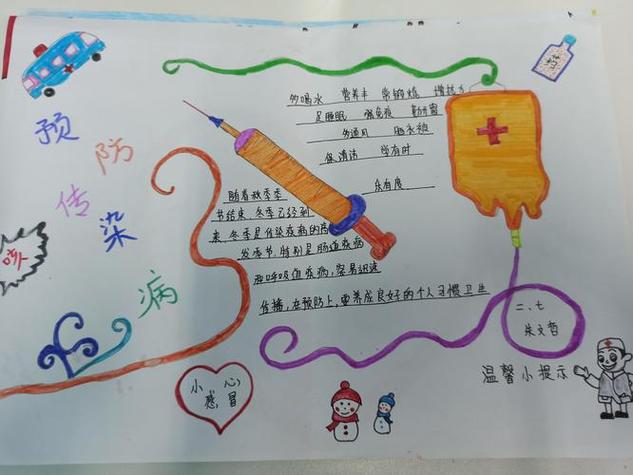 预
防
传
染
病
咳
多喝水 营养丰 常锻烧 增抗力
足睡眠 强免疫 勤开窗
多通风 脑衣被
保清洁 学有时
乐有度
随着秋季季
节结束,冬季已经到
来,冬季是传染疾病的高
发季节,特别是肠道疾病
和呼吸血疾病,容易迅速
传播,在预防上,要养成良好的个人习惯卫生
二、七
朱文哲
温馨小提示
小心
感冒